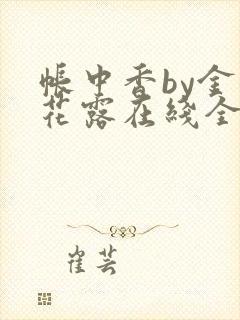 帐中香by金
花露在线全
崔芸